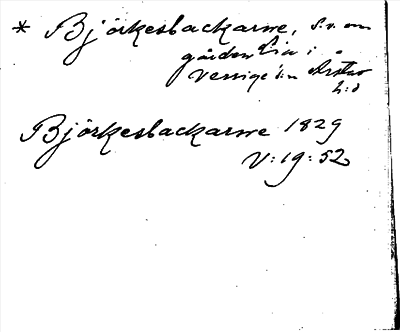 * Björkesbackarne, S.v. om
gården Lia i
Vessige s:n Årstad
h:d
Björkesbackarne 1829
V: 19: 52